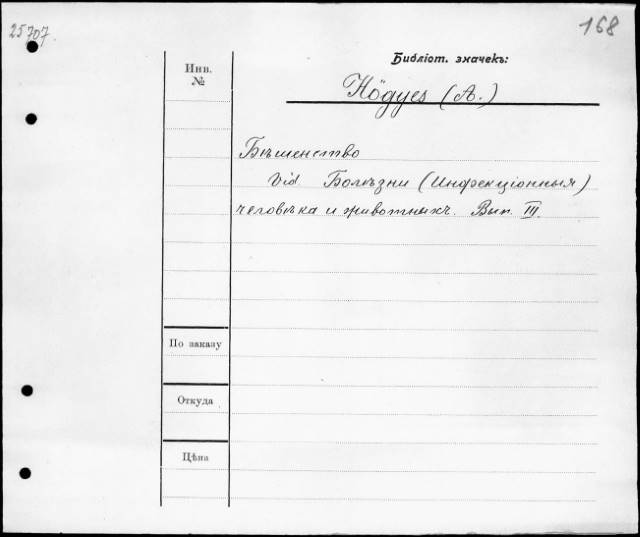 25707.
168
Библіот. значекъ:
Инв.
№
Högyes (A.)
Бѣшенство
Vid. Болѣзни (Инфекціонныя)
человѣка и животныхъ. Вып. III.
По заказу
Откуда
Цѣна